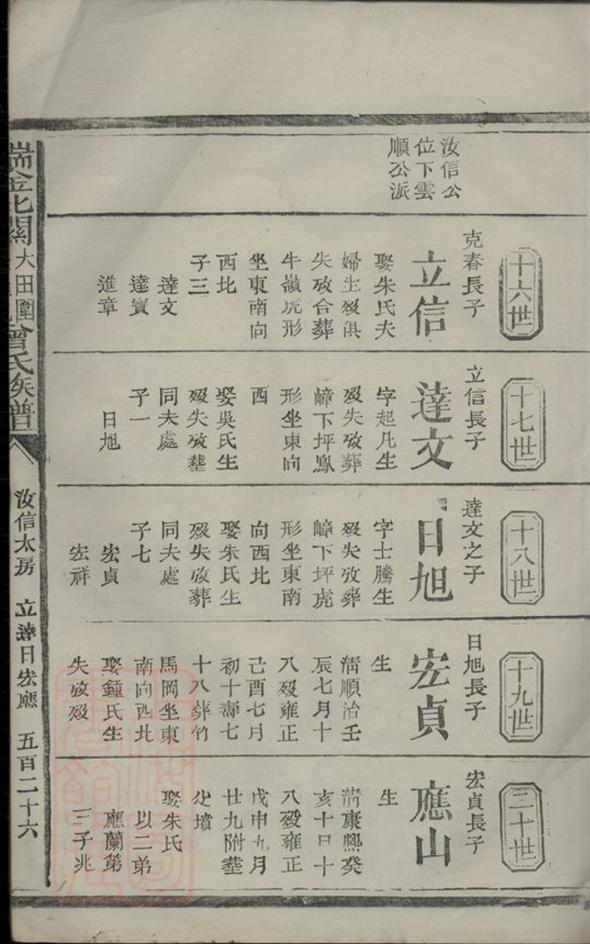 汝信公
位下雲
順公派
十六世
克春長子
立信
娶朱氏夫
婦生歿俱
失攷合葬
牛嶺虎形
坐東南向
西北
子三
達文
達賓
進章
十七世
立信長子
達文
字起凡生
歿失攷葬
嶂下坪鳳
形坐東向
西
娶吳氏生
歿失攷塟
同夫處
子一
日旭
十八世
達文之子
日旭
字士騰生
歿失攷葬
嶂下坪虎
形坐東南
向西北
娶朱氏生
歿失攷葬
同夫處
子七
宏貞
宏祥
十九世
日旭長子
宏貞
生
清順治壬
辰七月十
八歿雍正
己酉七月
初十壽七
十八葬竹
馬岡坐東
南向西北
娶鍾氏生
失攷歿
二十世
宏貞長子
應山
生
清康熙癸
亥十月十
八歿雍正
戊申九月
廿九附塟
父墳
娶朱氏
以二弟
應蘭第
三子兆
瑞金北關大田圍曾氏族譜
汝信太房
立達日宏應
五百二十六